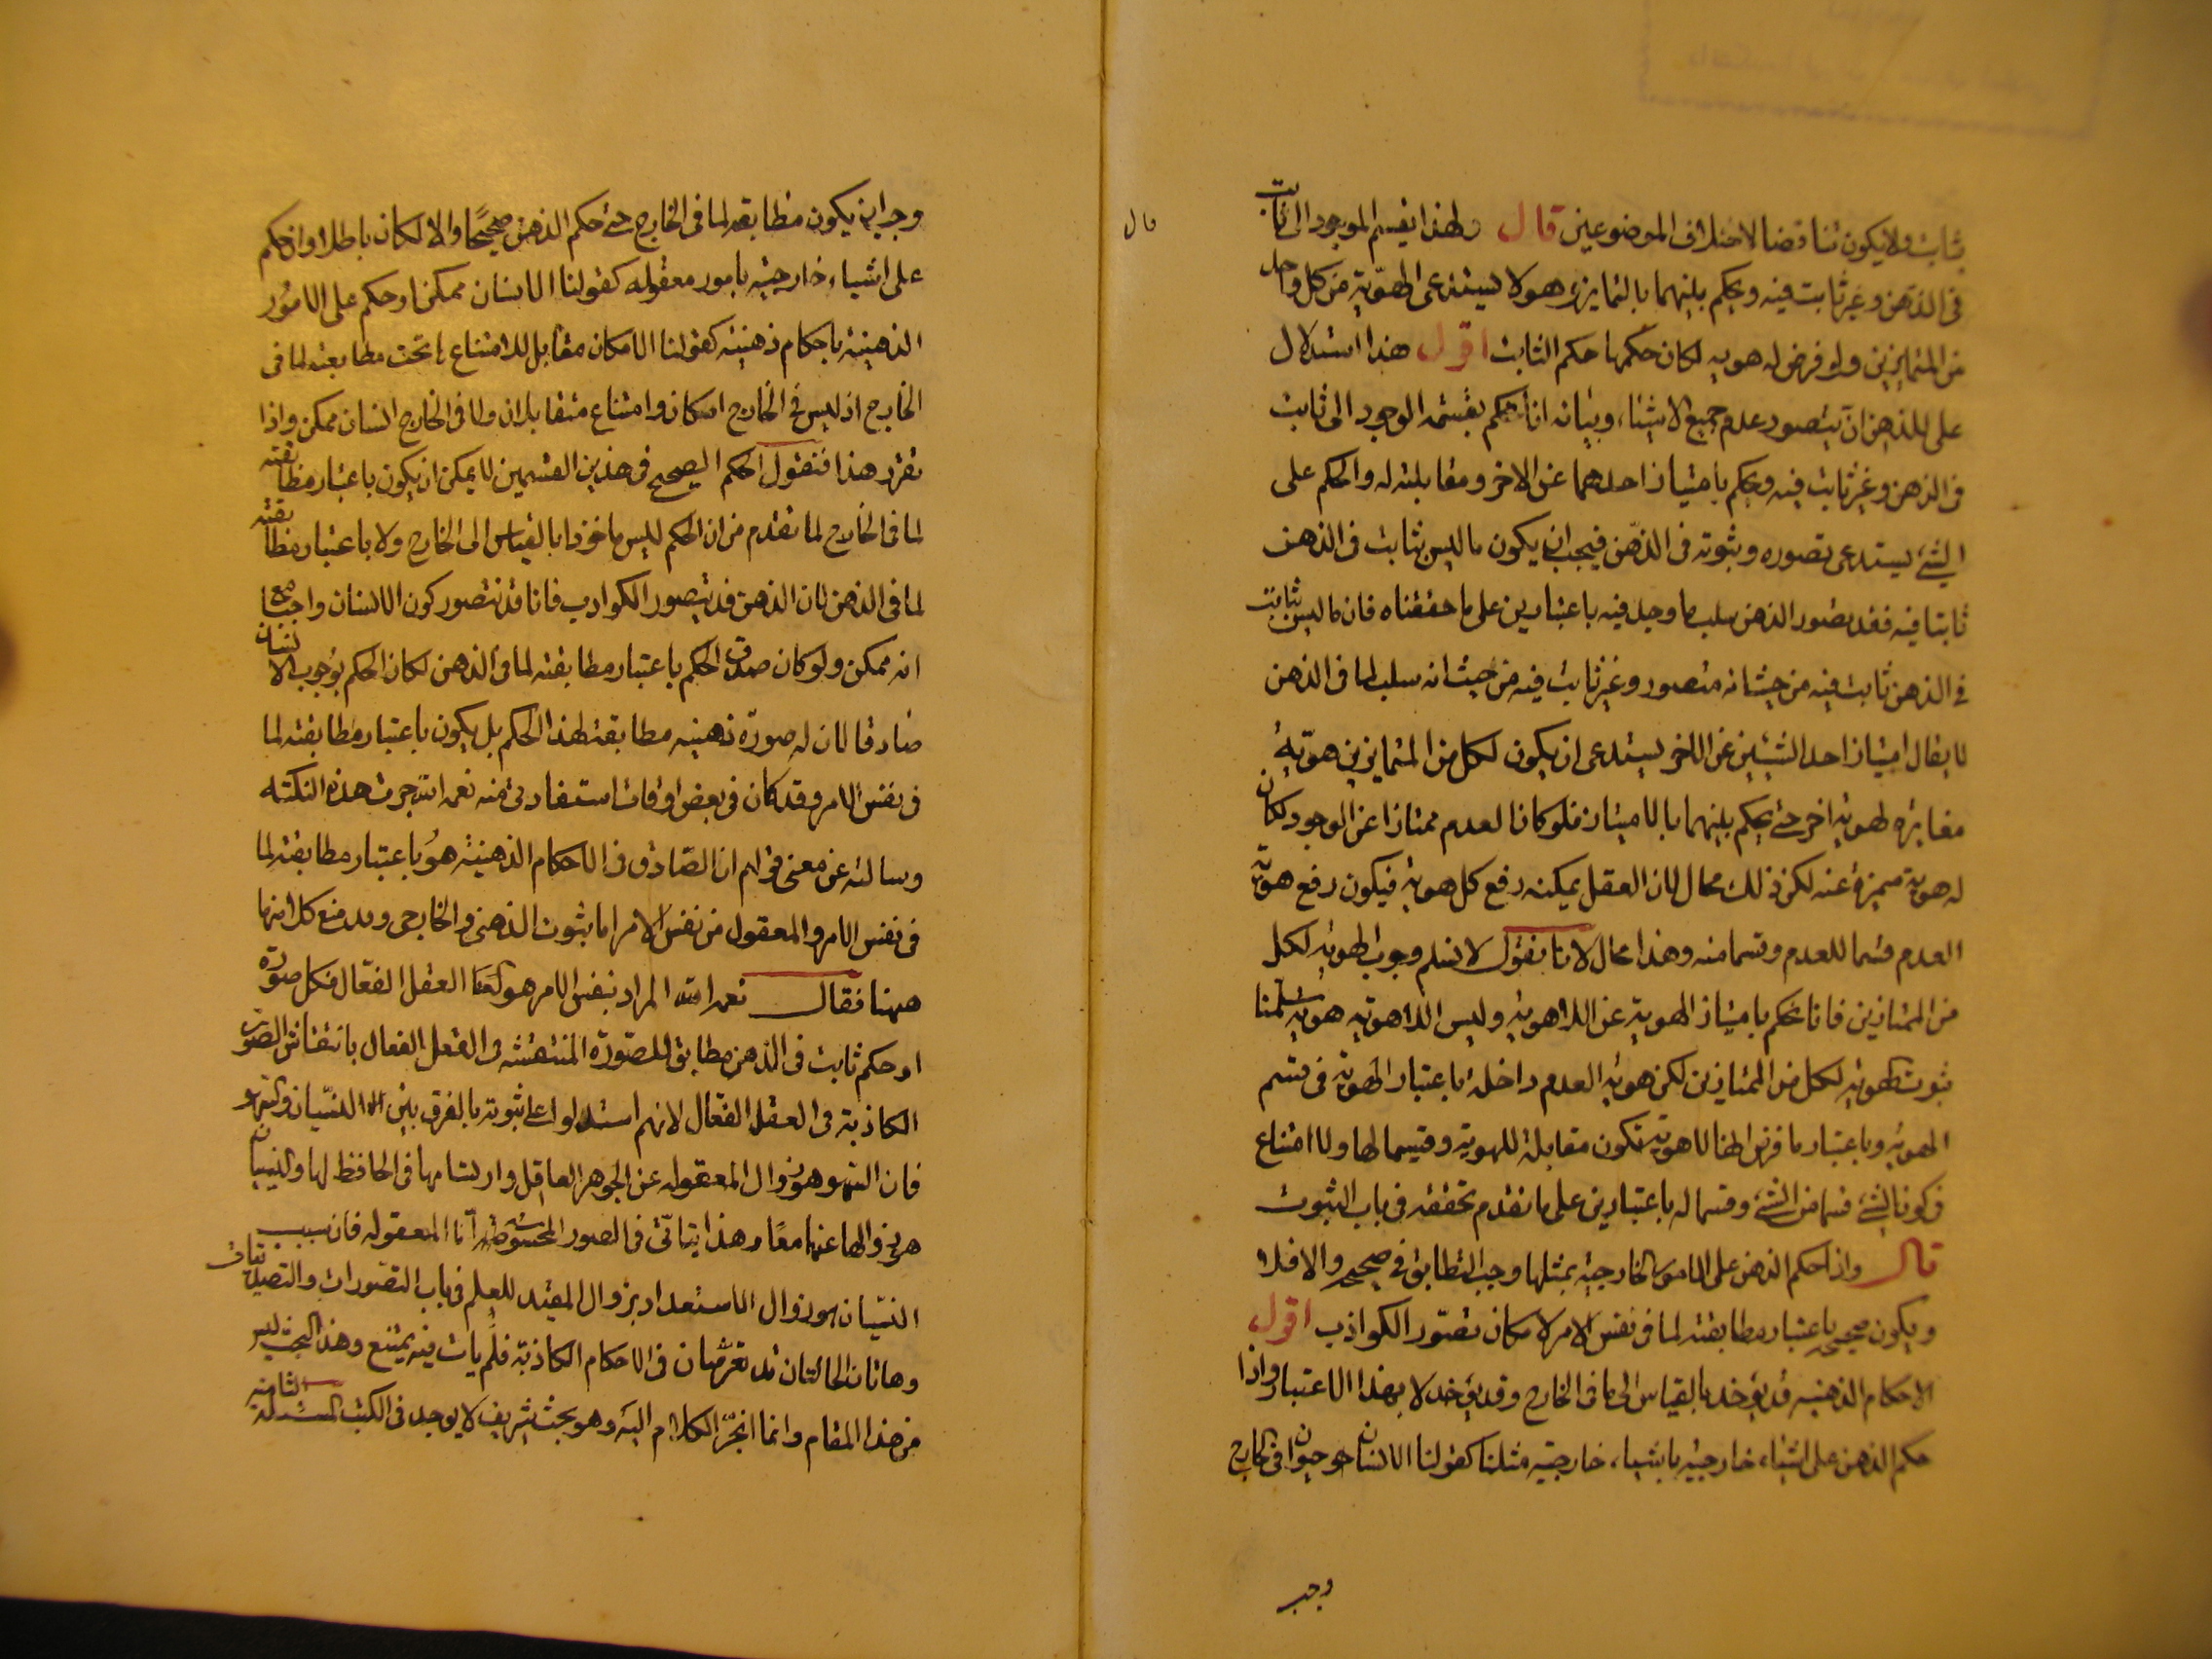 بثابت ولا يكون تناقضا لاختلاف الموضوعين قال ولهذا يقسم الموجود الى ثابت
فى الذهن وغير ثابت فيه ويحكم بينهما بالتمايز وهو لا يستدعى الهوية من كل واحد
من المتمايزين ولو فرض له هوية لكان حكمها حكم الثابت اقول هذا استدلال
على للذهن ان يتصور عدم جميع الاشياء وبيانه انا نحكم بقسمة الموجود الى ثابت
فى الذهن وغير ثابت فيه ونحكم بامتياز احدهما عن الاخر ومقابلته له والحكم على
الشئ يستدعى تصوره وثبوته فى الذهن فيجب ان يكون ما ليس بثابت فى الذهن
ثابتا فيه فقد تصور الذهن سلب ما وجد فيه باعتبارين على ما حققناه فان ما ليس بثابت
فى الذهن ثابت فيه من حيث انه متصور وغير ثابت فيه من حيث انه سلب لما فى الذهن
لا يقال امتياز احد الشيئين عن الاخر يستدعى ان يكون لكل من المتمايزين هوية
مغايرة لهوية اخر حتى يحكم بينهما بالامتياز فلو كان العدم ممتازا عن الوجود لكان
له هوية مميزة عنه لكن ذلك محال لان العقل يمكنه رفع كل هوية فيكون رفع هوية
العدم قسما للعدم وقسما منه وهذا محال لانا نقول لا نسلم وجوب الهوية لكل
من الممتازين فانا نحكم بامتياز الهوية عن اللاهوية وليس اللاهوية هوية سلمنا
ثبوت الهوية لكل من الممتازين لكن هوية العدم داخلة باعتبار الهوية فى قسم
الهوية وباعتبار ما فرض انها لاهوية تكون مقابلة للهوية وقسيما لها ولا امتناع
فى كون الشئ قسما من الشئ وقسيما له باعتبارين على ما تقدم تحققه فى باب الثبوت
قال واذا حكم الذهن على الامور الخارجية بمثلها وجب التطابق فى صحيحه والا فلا
ويكون صحيحه باعتبار مطابقته لما فى نفس الامر لامكان تصور الكواذب اقول
الاحكام الذهنية قد يؤخذ بالقياس الى ما فى الخارج وقد يؤخذ لا بهذا الاعتبار واذا
حكم الذهن على اشياء خارجية باشياء خارجية مثلنا كقولنا الانسان حيوان فى الخارج
وجب
قال
وجب ان يكون مطابقه لما فى الخارج حتى حكم الذهن صحيحا والا لكان باطلا وان حكم
على اشياء خارجية بامور معقوله كقولنا الانسان ممكن او حكم على الامور
الذهنية باحكام ذهنية كقولنا الامكان مقابل للامتناع لم تجب مطابقته لما فى
الخارج اذ ليس فى الخارج امكان وامتناع متقابلان ولا فى الخارج انسان ممكن واذا
تقرر هذا فنقول الحكم الصحيح فى هذين القسمين لا يمكن ان يكون باعتبار مطابقته
لما فى الخارج لما تقدم من ان الحكم ليس ماخوذا بالقياس الى الخارج ولا باعتبار مطابقته
لما فى الذهن لان الذهن قد يتصور الكواذب فانا قد نتصور كون الانسان واجبا مع
انه ممكن ولو كان صدق الحكم باعتبار مطابقته لما فى الذهن لكان الحكم بوجوب الانسان
صادقا لان له صورة ذهنية مطابقة لهذا الحكم بل يكون باعتبار مطابقته لما
فى نفس الامر وقد كان فى بعض اوقات استفادتى منه جرت هذه النكتة
وسالته عن معنى قولهم ان الصادق فى الاحكام الذهنية هو باعتبار مطابقته لما
فى نفس الامر والمعقول من نفس الامر اما بثبوت الذهنى والخارجى وقد منع كل منهما
ههنا فقال المراد بنفس الامر هو العقل الفعال فكل صورة
او حكم ثابت فى الذهن مطابق للصورة المنتقشة فى العقل الفعال بانتقاش الصور
الكاذبة فى العقل الفعال لانهم استدلوا على ثبوته بالفرق بين النسيان والسهو
فان السهو هو زوال المعقوله عن الجوهر العاقل وارتسامها فى الحافظ لها والنسيان
هو زوالها عنهما معا وهذا يتاتى فى الصور المحسوسة اما المعقوله فان سبب
النسيان هو زوال الاستعداد بزوال المفيد للعلم فى باب التصورات والتصديقات
وهاتان الحالتان قد تعرضان فى الاحكام الكاذبة فلم يات فيه بمقنع وهذا البحث ليس
من هذا المقام وانما انجر الكلام اليه وهو بحث شريف لا يوجد فى الكتب المسئلة الثامنة